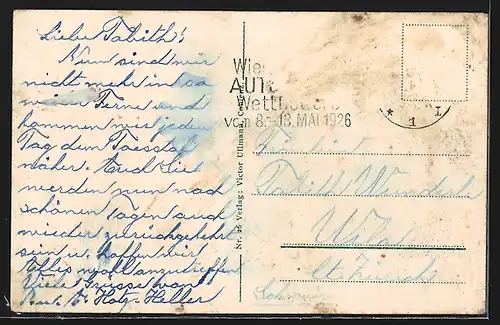 Liebe Tabith!
Nun sind wir
nicht mehr in so
weiter Ferne und
kommen mit jedem
Tag dem Toesstal
näher. Auch Sie
werden nun nach
schönen Tagen auch
wieder zurückgekehrt
sein u. hoffen wir
Alles wohl anzutreffen
Viele Grüsse von
Hotz-Heller
Nr. 26 Verlag: Victor Ullmann,
AUTO
Wettbewerb
vom 8.-13. MAI 1926
* 1
Tabith
Kt. Zürich
Schweiz